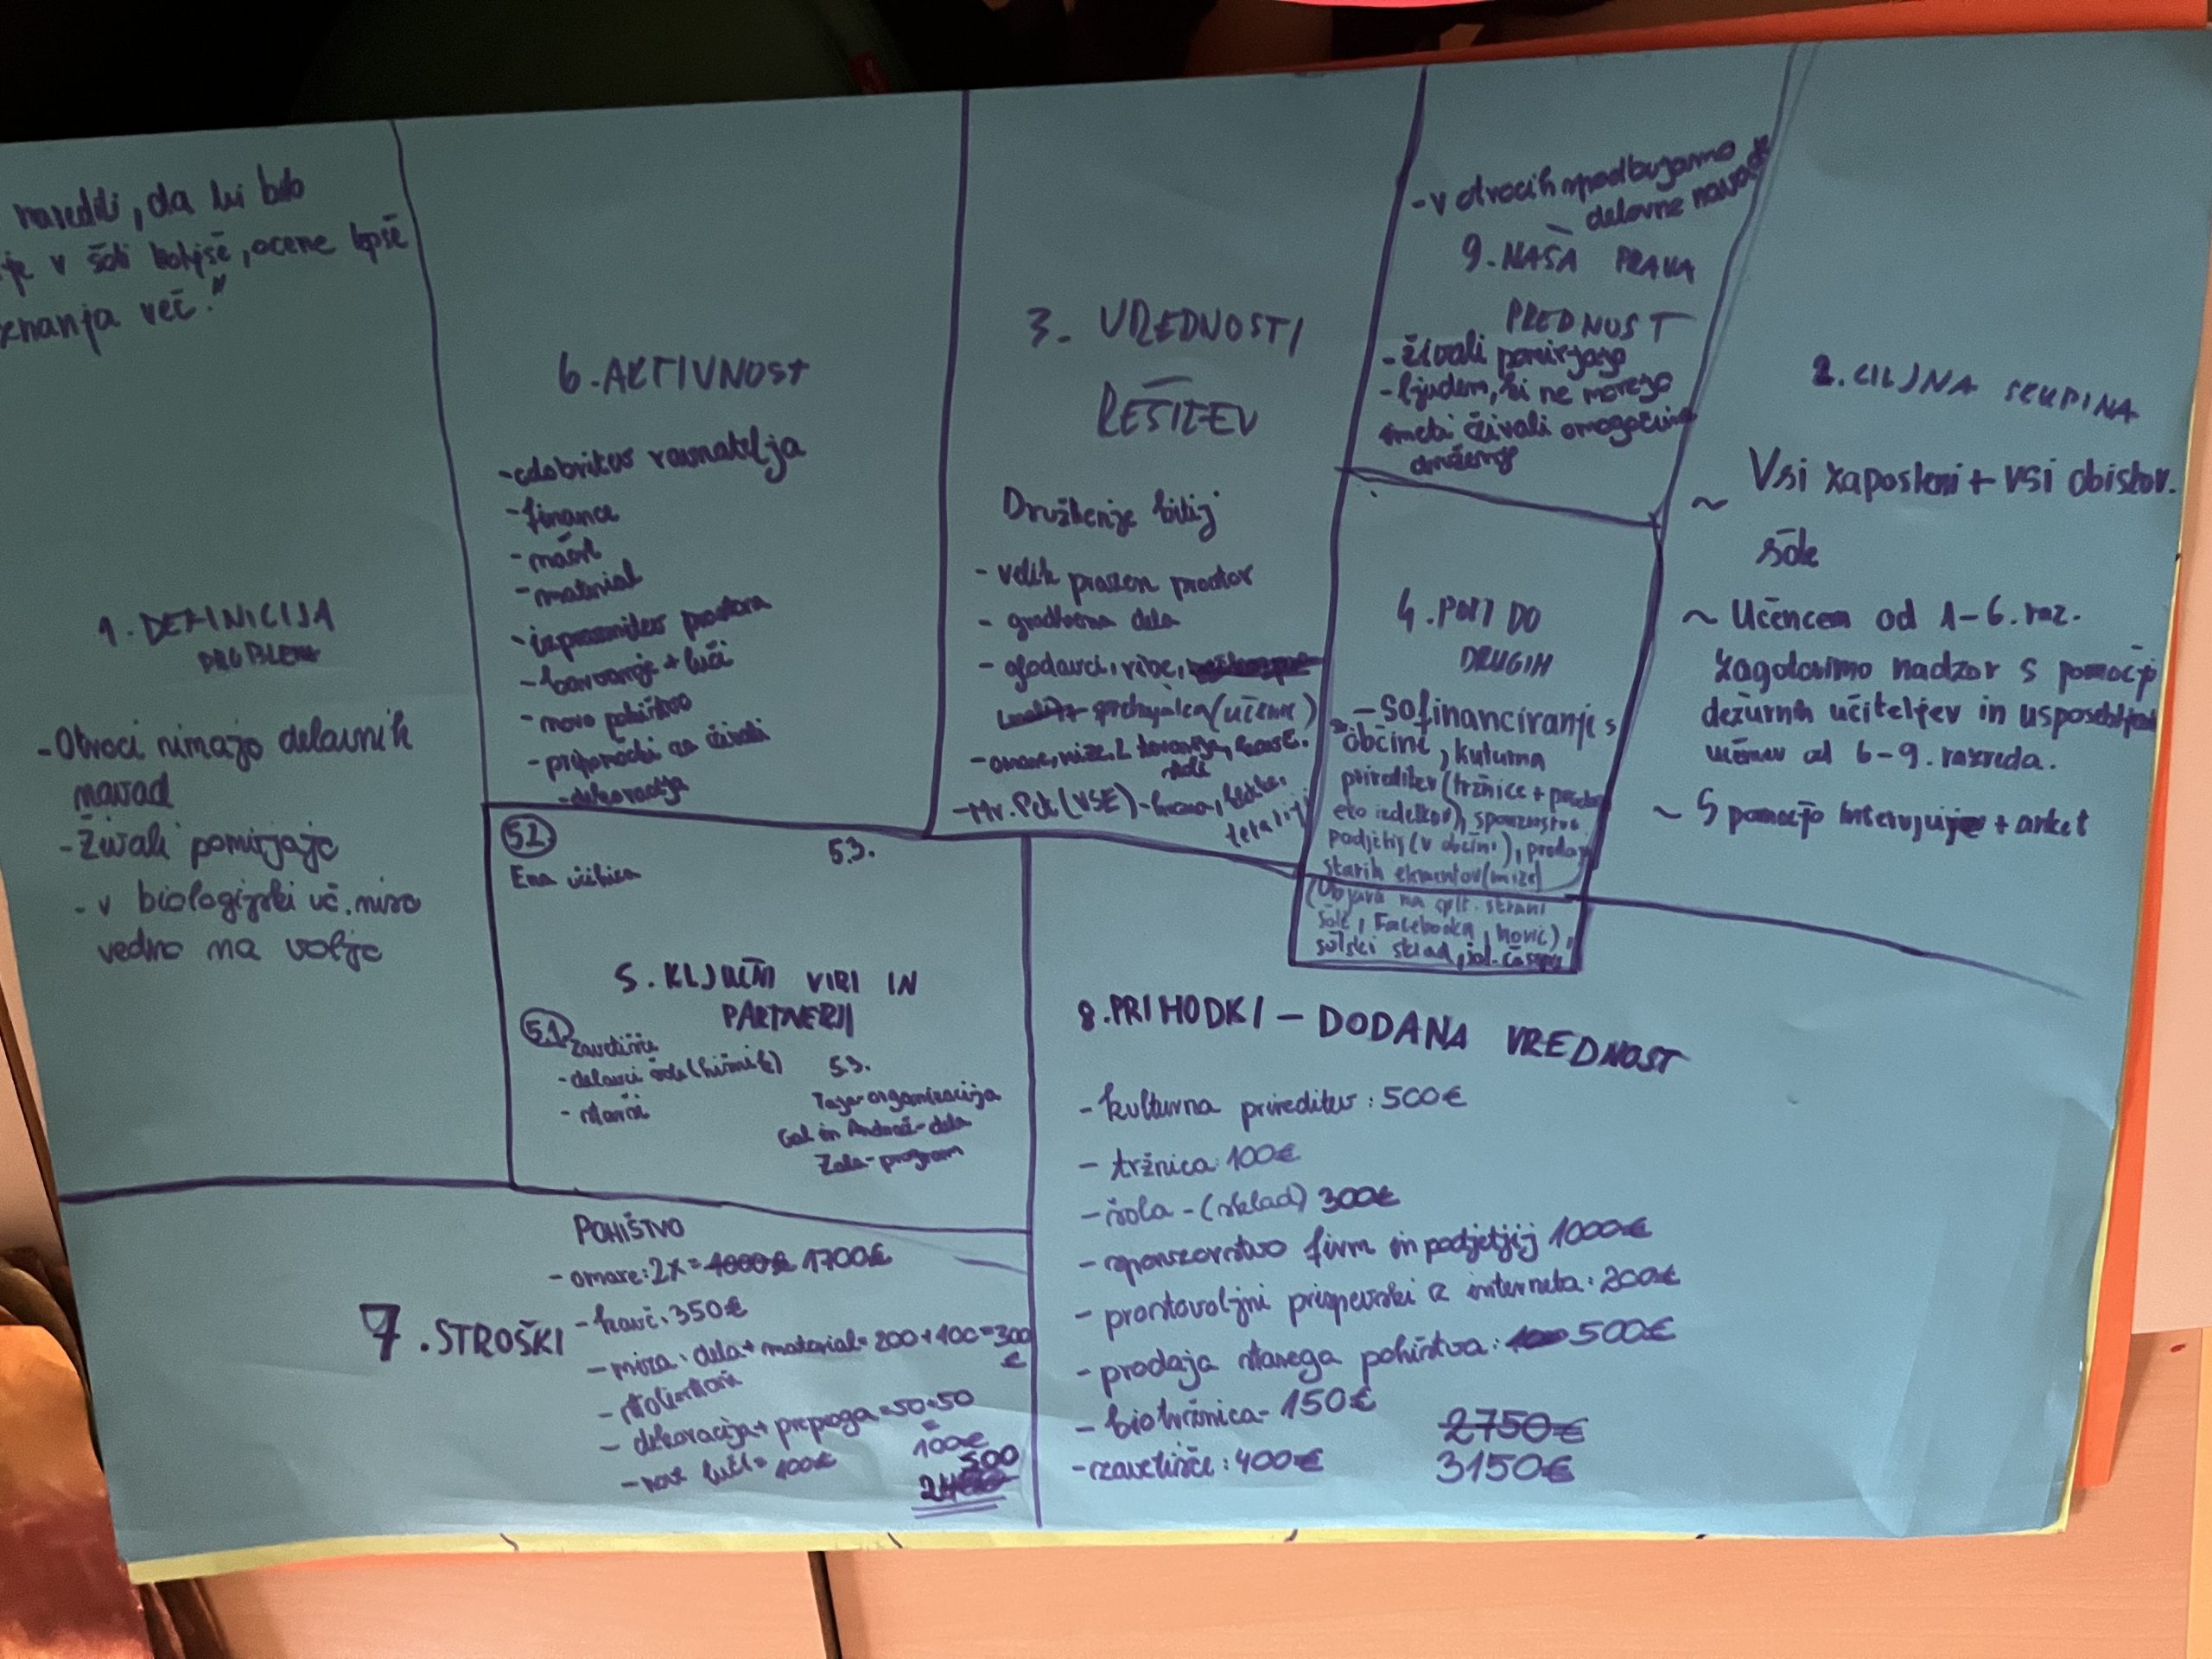 naredili, da bi bilo
je v šoli boljše, ocene lepše
znanja več."
1. DEFINICIJA
PROBLEMA
- Otroci nimajo delavnih
navad
- Živali pomirjajo
- v biologijski uč. niso
vedno na voljo
6. AKTIVNOST
- odobritev ravnatelja
- finance
- načrt
- material
- izpraznitev prostora
- barvanje + luči
- novo pohištvo
- pripomočki za živali
- dekoracija
3. VREDNOSTI
REŠITEV
Druženje bitij
- velik prazen prostor
- gradbena dela
- glodavci, ribe,
sprehajalca (učenec)
- omare, mize,
- Mr. Pet (VSE) - hrana,
- v otrocih spodbujamo
delovne navade
9. NAŠA PRAVA
PREDNOST
- živali pomirjajo
- ljudem, ki ne morejo
imeti živali omogočimo
druženje
4. POTI DO
DRUGIH
- Sofinanciranje s
občini, kulturna
prireditev (tržnice +
eto izdelkov), sponzorstvo
podjetij (v občini), prodaja
starih elementov (mize)
(Objava na splt. strani
šole, Facebooka, Novic),
šolski sklad, šol. časopis
2. CILJNA SKUPINA
~ Vsi zaposleni + vsi obiskov.
šole
~ Učencem od 1-6. raz.
zagotovimo nadzor s pomočjo
dežurnih učiteljev in usposobljenih
učencev od 6-9. razreda.
~ S pomočjo intervjuje + anket
5.2
Ena učilnica
5.3.
5. KLJUČNI VIRI IN
PARTNERJI
5.1 Zavetišče
- delavci šole (hišnik)
- starši
5.3.
Taja-organizacija
Gal in Andraž-dela
Zala-program
7. STROŠKI
POHIŠTVO
- omare: 2x = 1000€ 1700€
- kavč: 350€
- miza: dela + material = 200 + 100 = 300
€
- stoli-stari
- dekoracija + preproga = 50+50
=
100€
- nove luči = 100€
500
8. PRIHODKI - DODANA VREDNOST
- kulturna prireditev: 500€
- tržnica: 100€
- šola - (sklad) 300€
- sponzorstvo firm in podjetjij 1000€
- prostovoljni prispevski iz interneta: 200€
- prodaja starega pohištva: 500€
- biotržnica - 150€
2750€
- zavetišče: 400€
3150€